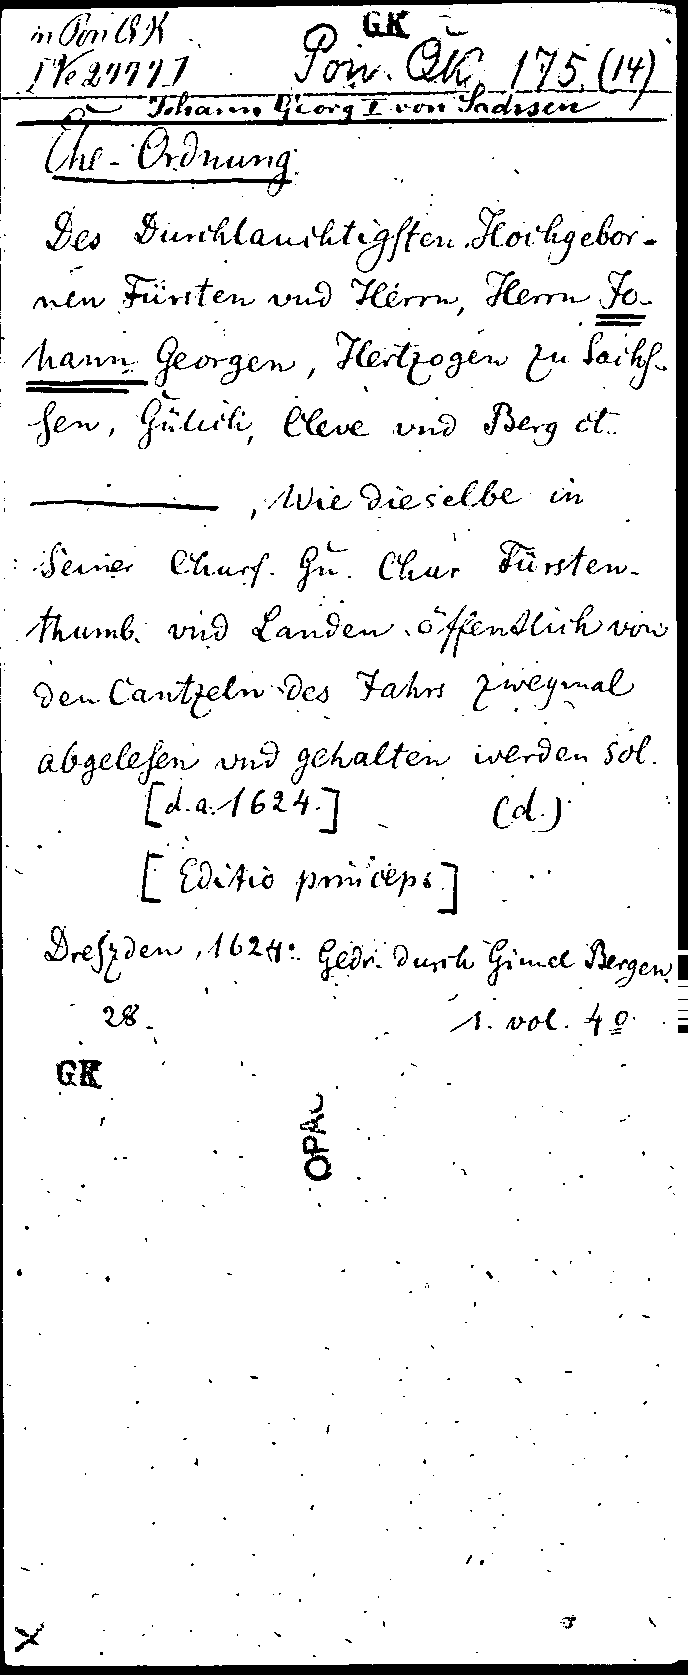 GK
in Pon QK
Pon. QK. 175. (14)
Johann Georg I von Sachsen
Ehe-Ordnung
Des Durchlauchtigsten Hochgebor-
nen Fürsten vnd Herrn, Herrn Jo-
hann Georgen, Hertzogen zu Sachs-
sen, Gülich, Cleve vnd Berg et.
, Wie dieselbe in
Seiner Churf. Gn. Chur Fürsten-
thumb. vnd Landen öffentlich von
den Cantzeln des Jahrs zweymal
abgelesen vnd gehalten werden sol.
[d. a. 1624.] (d.)
[Editio princeps.]
Dreszden, 1624. Gedr. durch Gimel Bergen.
28. 1. vol. 4o.
GK
OPAC
X